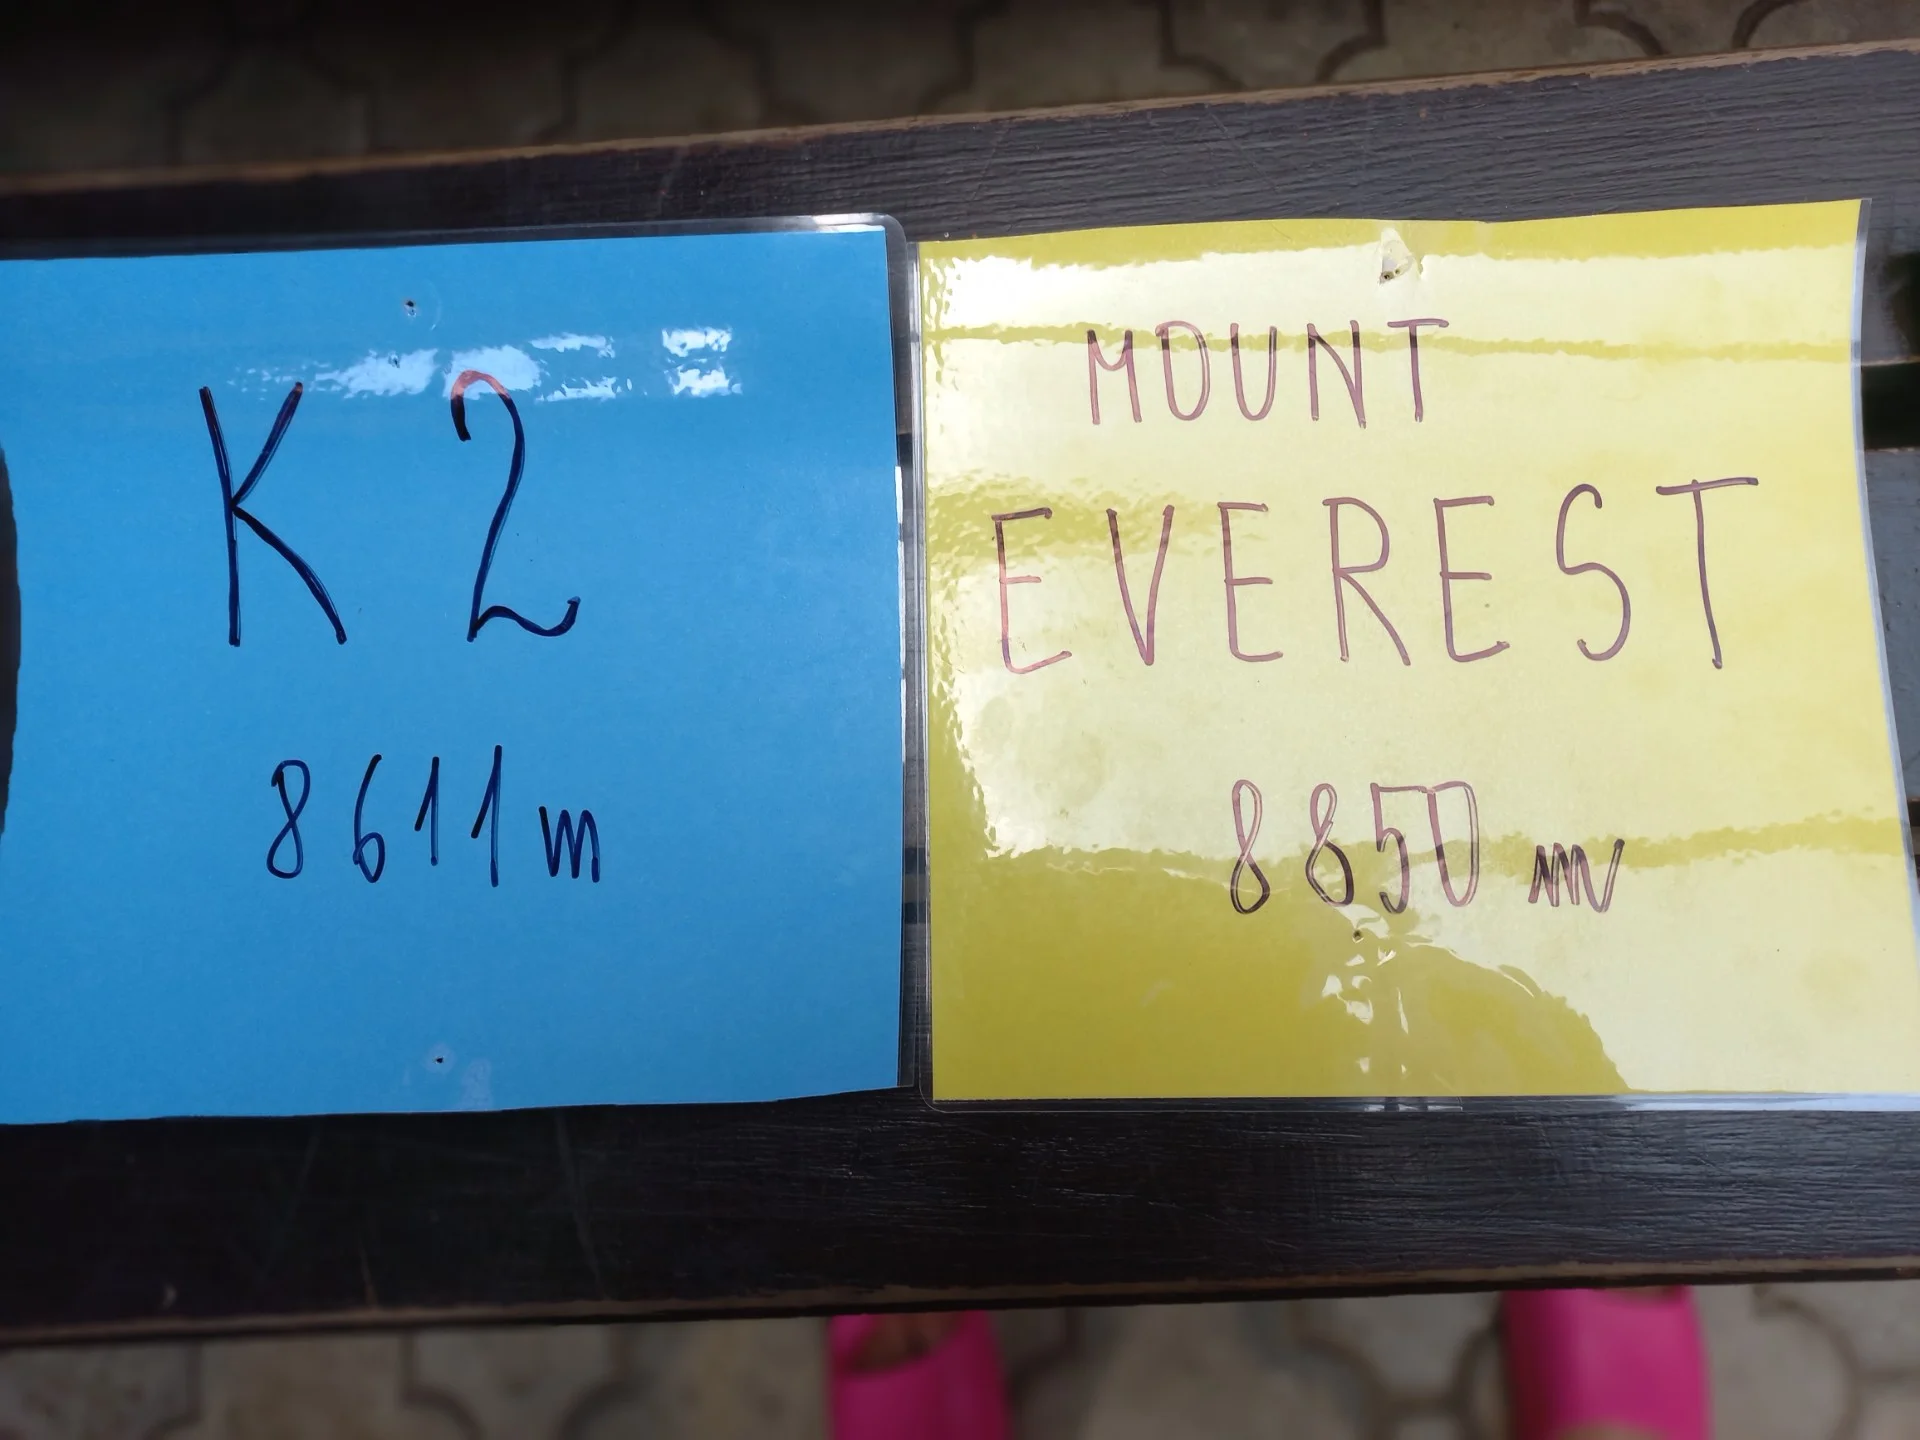 K2
8611m
MOUNT
EVEREST
8850 m